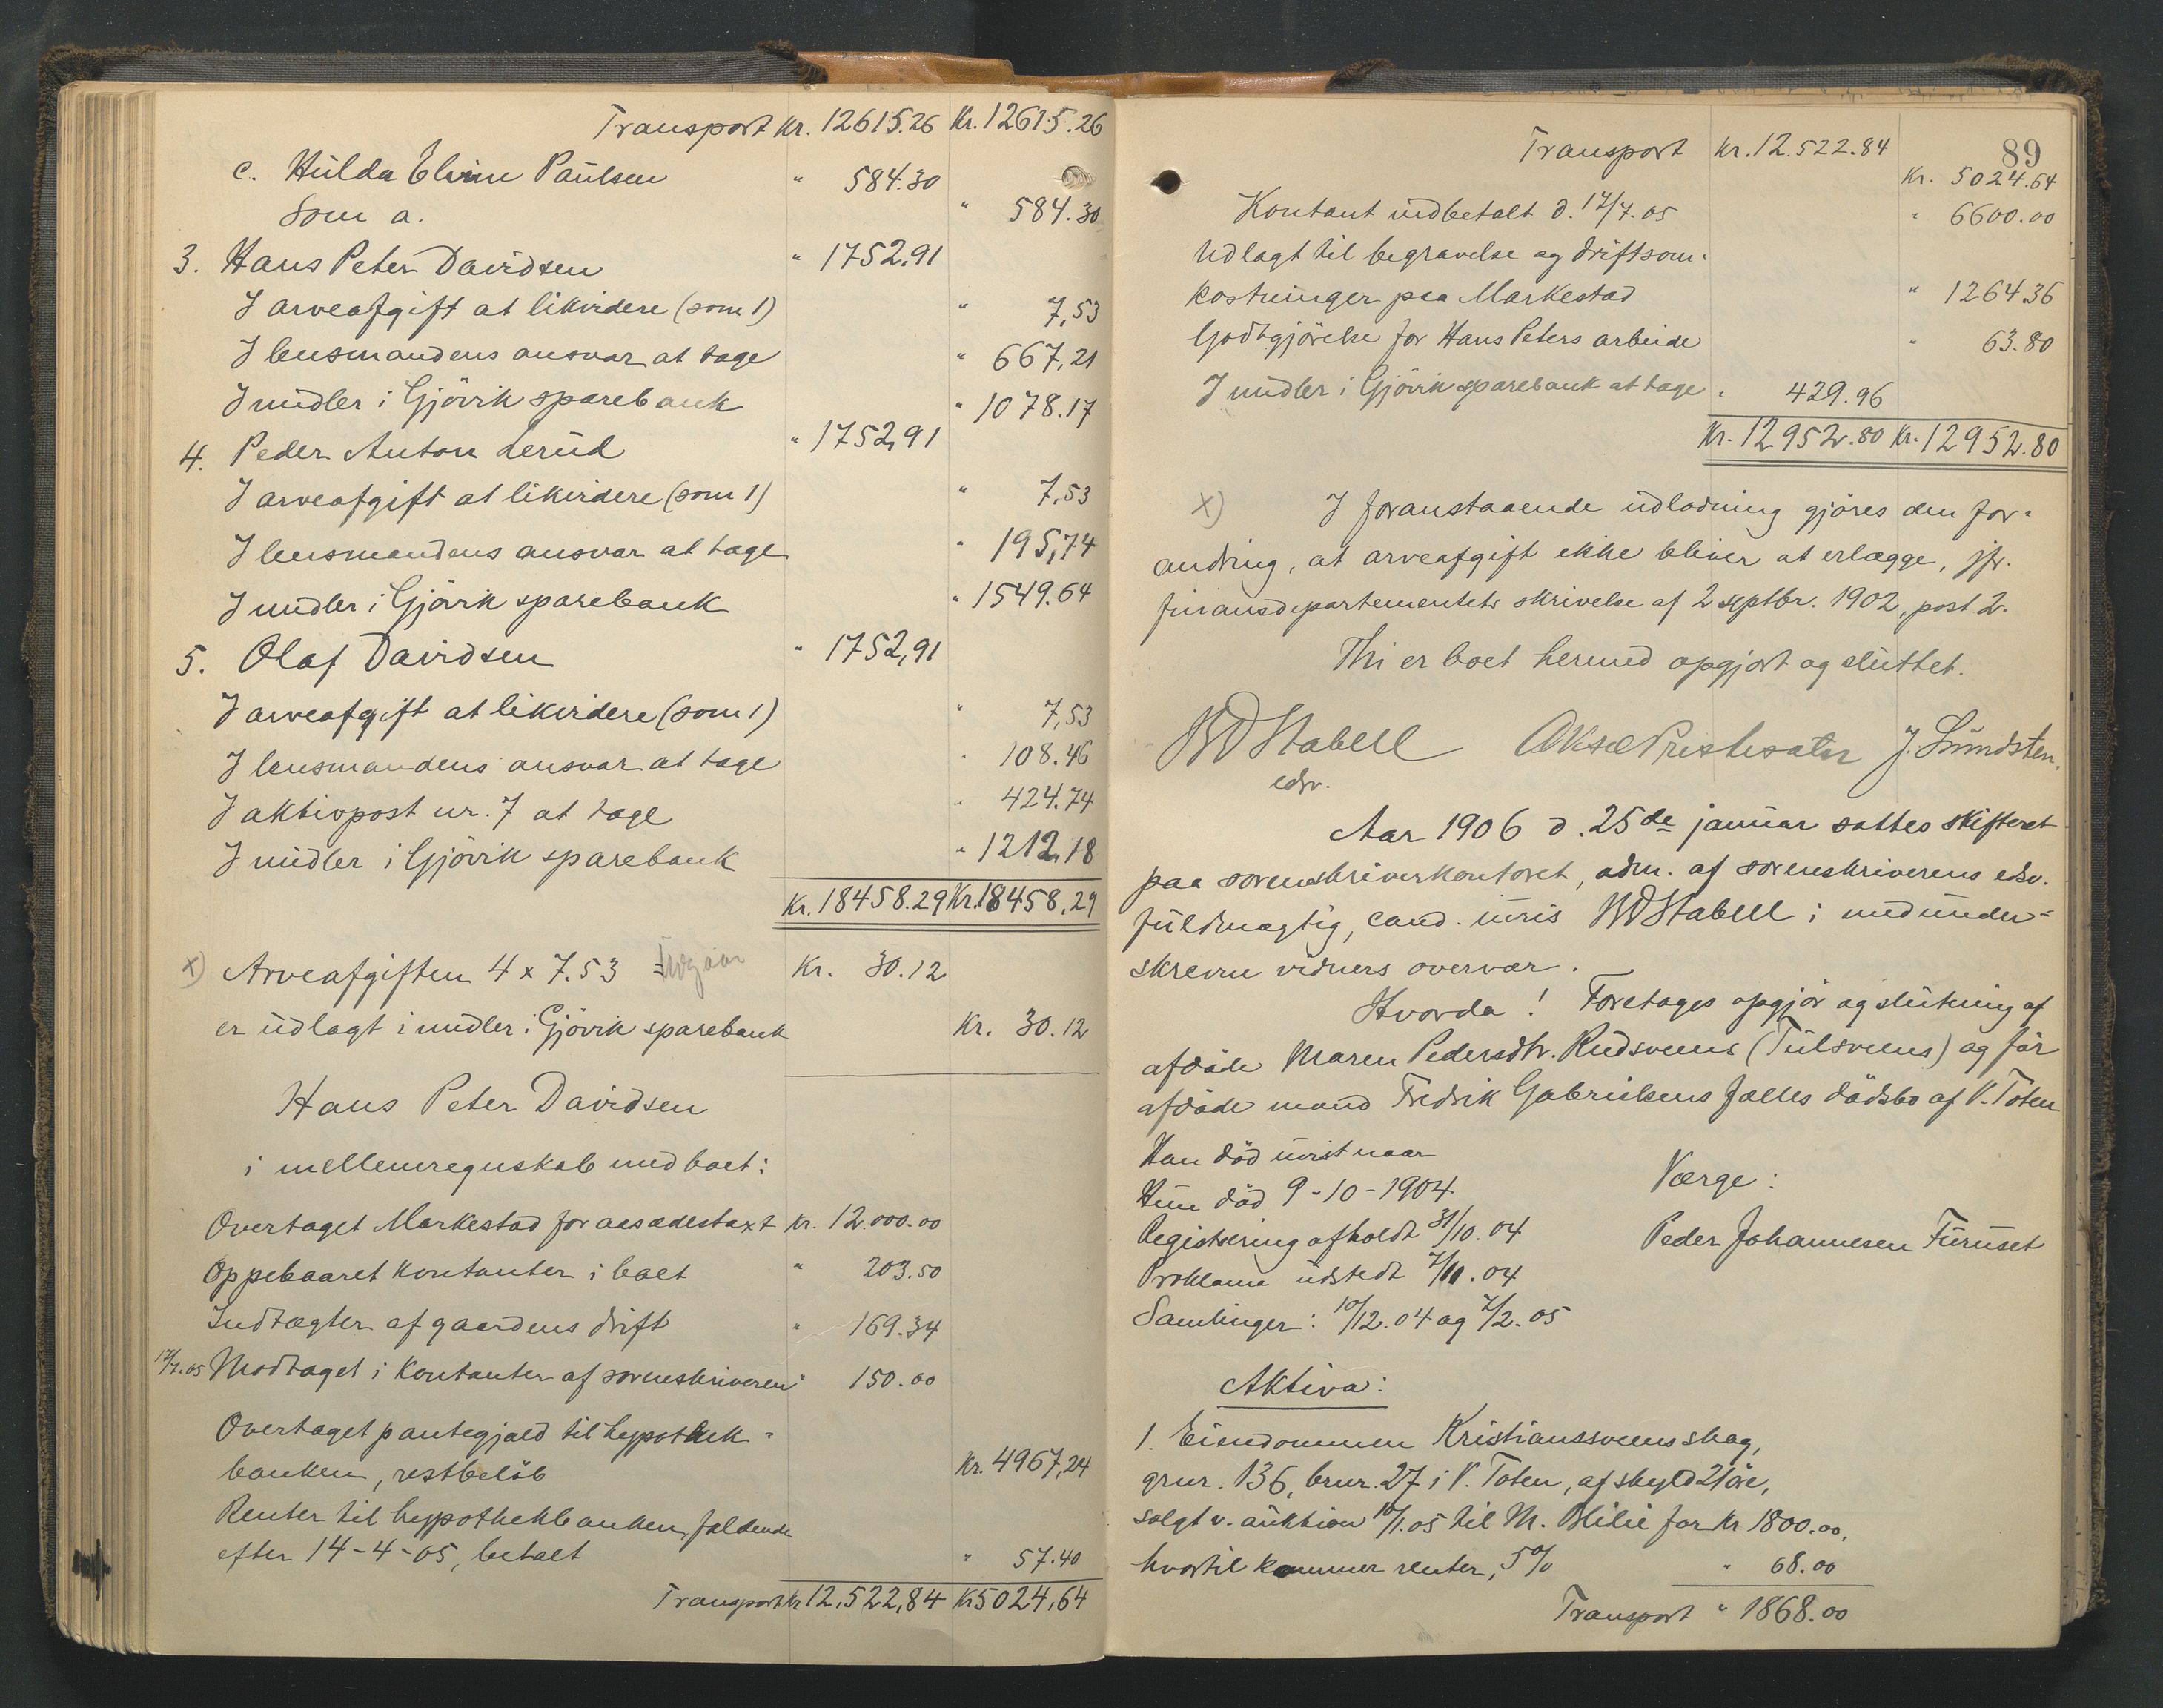 Transport Kr. 12615.26 Kr. 12615.26
c. Hulda Eline Paulsen " 584.30
Som a. " 584.30
3. Hans Peter Davidsen " 1752,91
I arveafgift at likvidere (som 1) " 7,53
I lensmandens ansvar at tage " 667,21
I midler i Gjövik sparebank " 1078.17
4. Peder Anton Lerud " 1752,91
I arveafgift at likvidere (som 1) " 7,53
I lensmandens ansvar at tage " 195,74
I midler i Gjövik sparebank " 1549.64
5. Olaf Davidsen " 1752,91
I arveafgift at likvidere (som 1) " 7,53
I lensmandens ansvar at tage " 108.46
I aktivpost nr. 7 at tage " 424.74
I midler i Gjövik sparebank " 1212,18
Kr. 18458.29 Kr. 18458,29
x) Arveafgiften 4 x 7.53 = Udgaar Kr. 30.12
er udlagt i midler i Gjövik sparebank Kr. 30.12
Hans Peter Davidsen
i mellemregnskab med boet:
Overtaget Markestad for aasædestaxt Kr. 12.000.00
Oppebaaret kontanter i boet " 203.50
Indtægter af gaardens drift " 169.34
17/7.05 Modtaget i kontanter af sorenskriveren " 150.00
Overtaget pantegjæld til hypothek-
banken, restbelöb Kr. 4967,24
Renter til hypothekbanken, faldende
efter 14-4-05, betalt " 57.40
Transport Kr 12.522,84 Kr 5024,64
89
Transport Kr. 12.522.84
Kr. 5024.64
Kontant indbetalt d. 17/7.05 " 6600.00
Udlagt til begravelse og driftsom-
kostninger paa Markestad " 1264.36
Godtgjörelse for Hans Peters arbeide " 63.80
I midler i Gjövik sparebank at tage " 429.96
Kr. 12952.80 Kr. 12952.80
x) I foranstaaende udlodning gjöres den for-
andring, at arveafgift ikke bliver at erlægge, jfr.
finansdepartementets skrivelse af 2 septbr. 1902, post 2.
Thi er boet hermed opgjort og sluttet.
WDStabell Aksel Prestesater J. Sundsten.
edsv.
Aar 1906 d. 25de januar sattes skifteret
paa sorenskriverkontoret, adm. af sorenskriverens edsv.
fuldmægtig, cand. iuris WDStabell i medunder-
skrevne vidners overvær.
Hvorda! Foretages opgjör og slutning af
afdöde Maren Pedersdtr. Rudsveens (Tulsveens) og för
afdöde mand Fredrik Gabrielsens fælles dödsbo af V. Toten
Han död uvist naar
Værge:
Hun död 9-10-1904
Registrering afholdt 31/10.04 Peder Johannesen Furuset
Proklama udstedt 7/11.04
Samlinger: 10/12.04 og 7/2.05
Aktiva:
1. Eiendommen Kristianssveenshag,
grnr. 136, brnr. 27 i V. Toten, af skyld 21 öre,
solgt v. auktion 10/1.05 til M. Blilie for Kr 1800.00,
hvortil kommer renter, 5% " 68.00
Transport " 1868.00